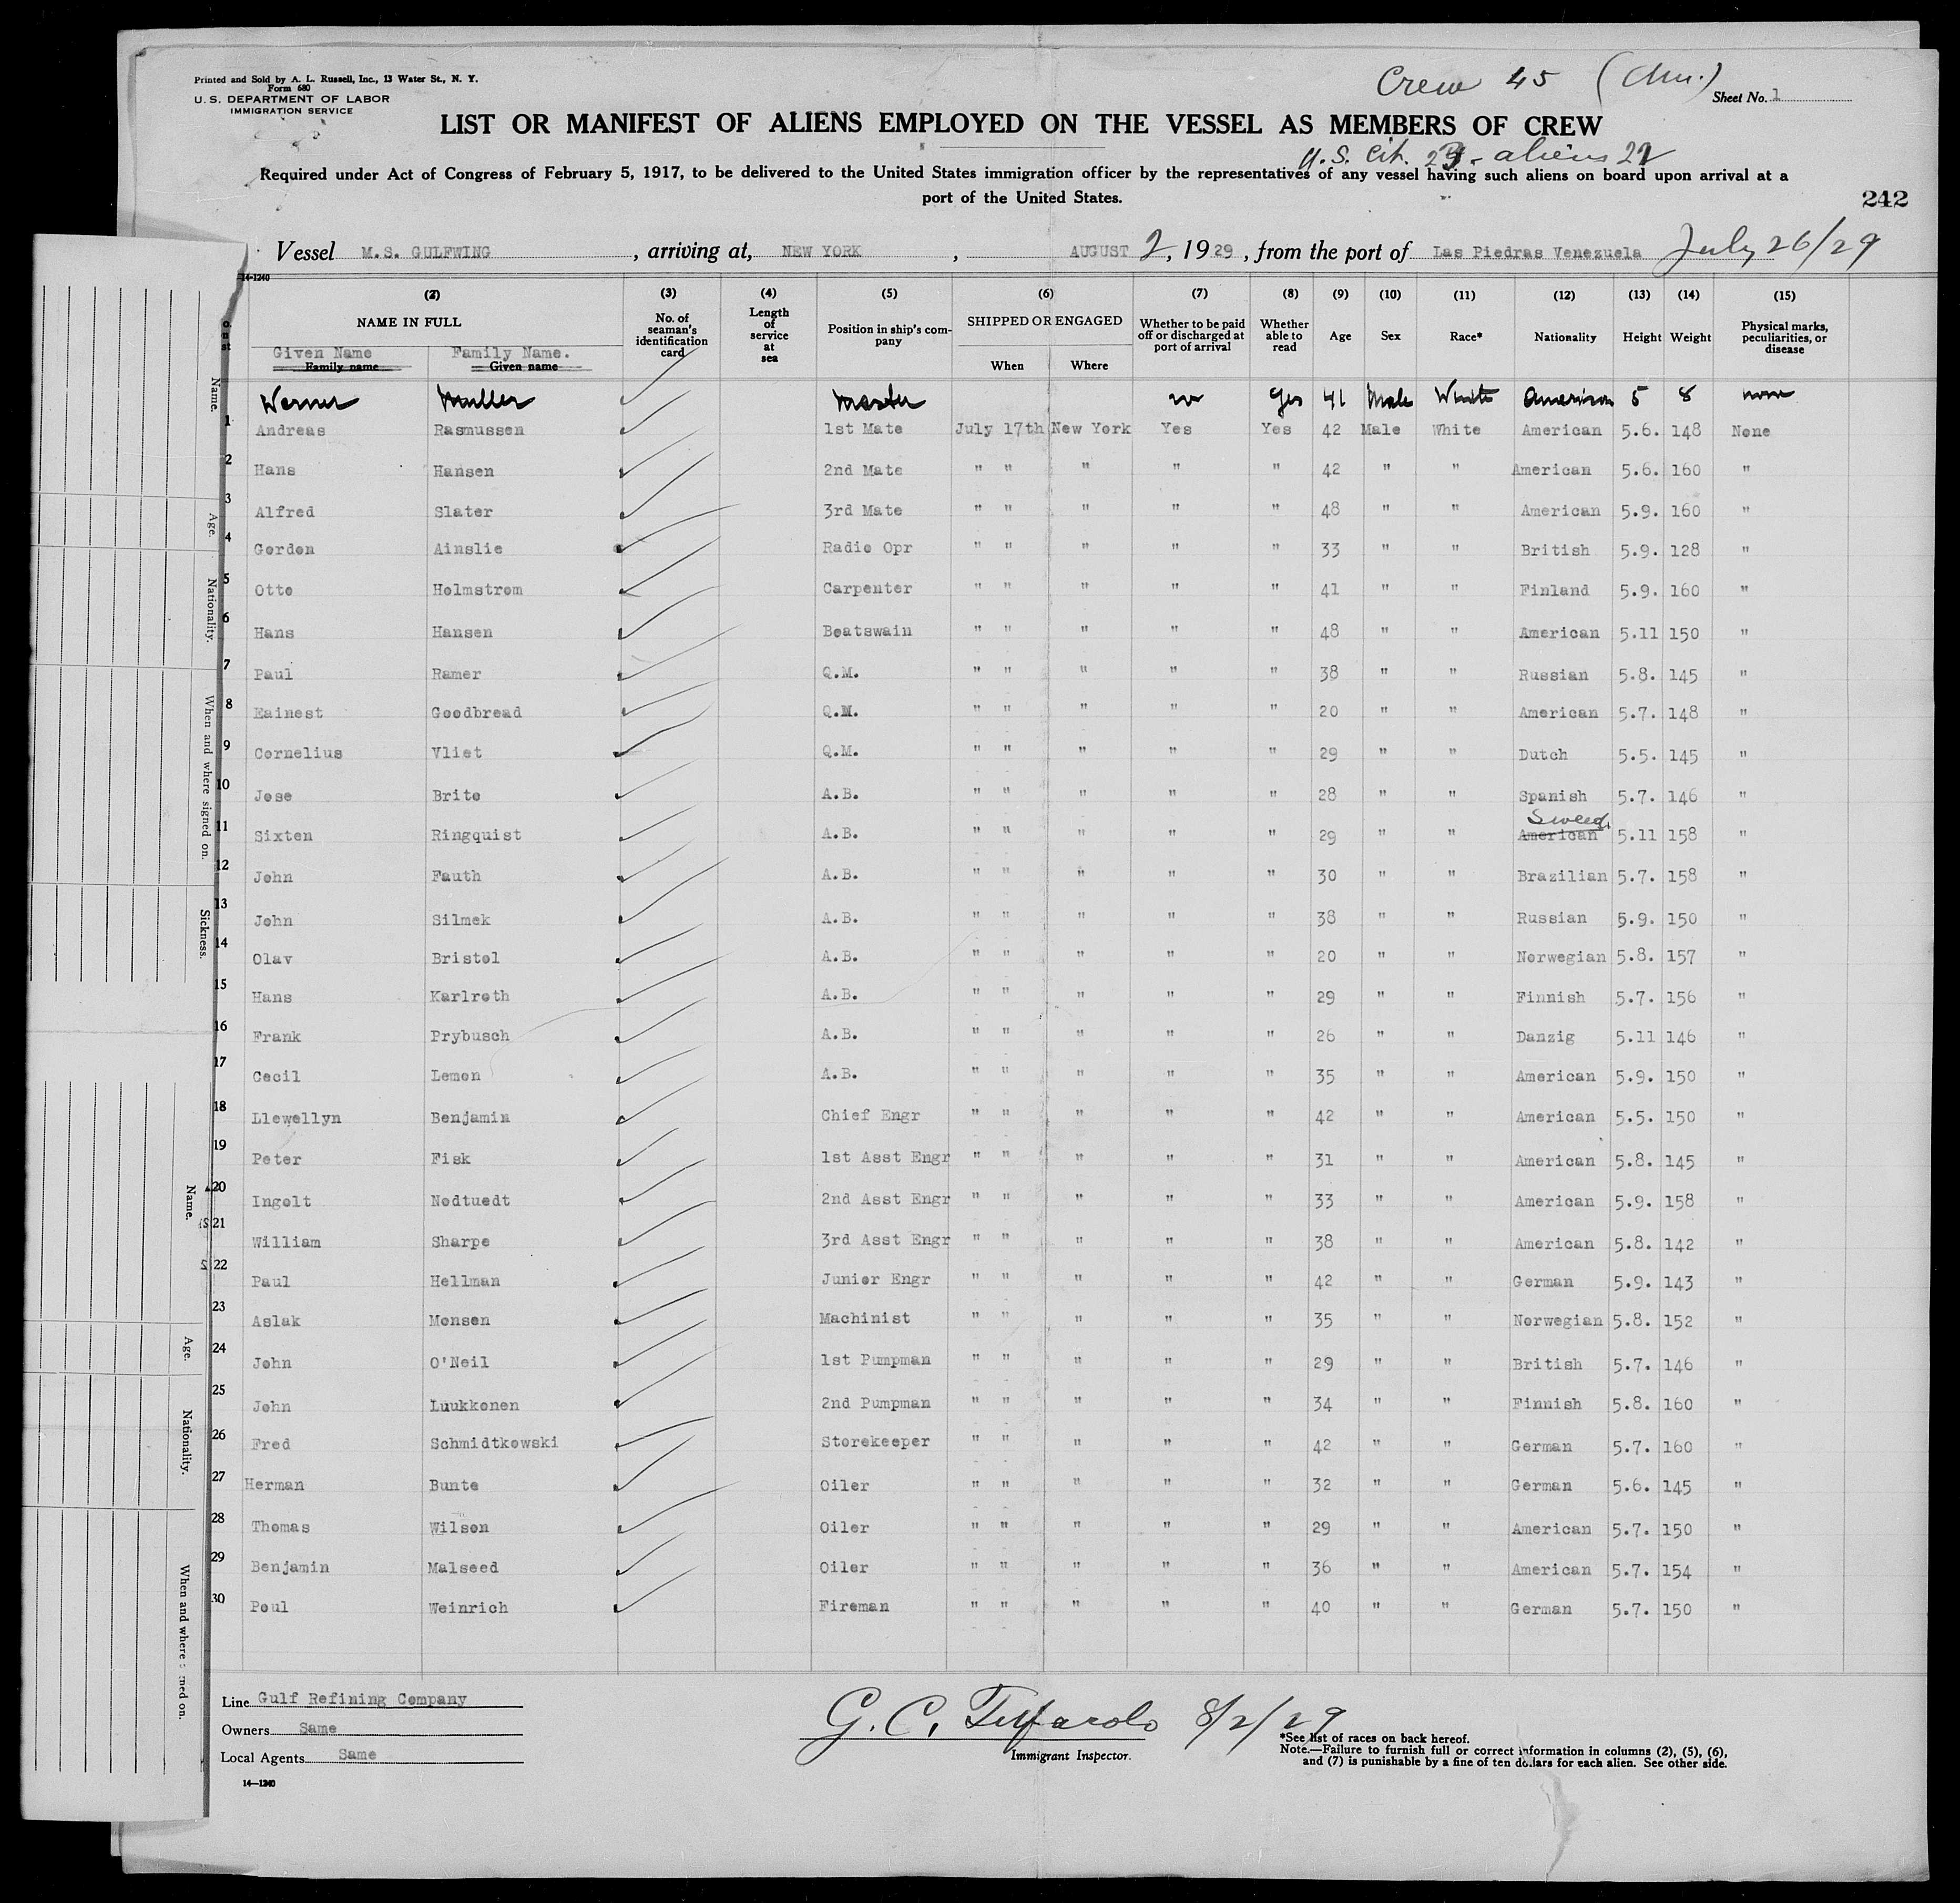 Printed and Sold by A. L. Russell, Inc., 13 Water St., N. Y.
Form 680
U. S. DEPARTMENT OF LABOR
IMMIGRATION SERVICE
Crew 45 (Am.)
Sheet No. 1
LIST OR MANIFEST OF ALIENS EMPLOYED ON THE VESSEL AS MEMBERS OF CREW
U.S. Cit. - aliens
Required under Act of Congress of February 5, 1917, to be delivered to the United States immigration officer by the representatives of any vessel having such aliens on board upon arrival at a
port of the United States.
242
Vessel M.S. GULFWING, arriving at, NEW YORK, AUGUST 2, 1929, from the port of Las Piedras Venezuela July 26/29
14-1240
(2) (3) (4) (5) (6) (7) (8) (9) (10) (11) (12) (13) (14) (15)
NAME IN FULL No. of seaman's identification card Length of service at sea Position in ship's company SHIPPED OR ENGAGED Whether to be paid off or discharged at port of arrival Whether able to read Age Sex Race* Nationality Height Weight Physical marks, peculiarities, or disease
Given Name Family Name. When Where
Family name Given name
Werner Muller Master no Yes 41 Male White American 5 8 none
1 Andreas Rasmussen 1st Mate July 17th New York Yes Yes 42 Male White American 5.6. 148 None
2 Hans Hansen 2nd Mate " " " " " 42 " " American 5.6. 160 "
3 Alfred Slater 3rd Mate " " " " " 48 " " American 5.9. 160 "
4 Gordon Ainslie Radio Opr " " " " " 33 " " British 5.9. 128 "
5 Otto Holmstrom Carpenter " " " " " 41 " " Finland 5.9. 160 "
6 Hans Hansen Boatswain " " " " " 48 " " American 5.11 150 "
7 Paul Ramer Q.M. " " " " " 38 " " Russian 5.8. 145 "
8 Eainest Goodbread Q.M. " " " " " 20 " " American 5.7. 148 "
9 Cornelius Vliet Q.M. " " " " " 29 " " Dutch 5.5. 145 "
10 Jose Brito A.B. " " " " " 28 " " Spanish 5.7. 146 "
Swed.
11 Sixten Ringquist A.B. " " " " " 29 " " American 5.11 158 "
12 John Fauth A.B. " " " " " 30 " " Brazilian 5.7. 158 "
13 John Silmek A.B. " " " " " 38 " " Russian 5.9. 150 "
14 Olav Bristol A.B. " " " " " 20 " " Norwegian 5.8. 157 "
15 Hans Karlroth A.B. " " " " " 29 " " Finnish 5.7. 156 "
16 Frank Prybusch A.B. " " " " " 26 " " Danzig 5.11 146 "
17 Cecil Lemon A.B. " " " " " 35 " " American 5.9. 150 "
18 Llewellyn Benjamin Chief Engr " " " " " 42 " " American 5.5. 150 "
19 Peter Fisk 1st Asst Engr " " " " " 31 " " American 5.8. 145 "
20 Ingolt Nodtuedt 2nd Asst Engr " " " " " 33 " " American 5.9. 158 "
21 William Sharpe 3rd Asst Engr " " " " " 38 " " American 5.8. 142 "
22 Paul Hellman Junior Engr " " " " " 42 " " German 5.9. 143 "
23 Aslak Monsen Machinist " " " " " 35 " " Norwegian 5.8. 152 "
24 John O'Neil 1st Pumpman " " " " " 29 " " British 5.7. 146 "
25 John Luukkonen 2nd Pumpman " " " " " 34 " " Finnish 5.8. 160 "
26 Fred Schmidtkowski Storekeeper " " " " " 42 " " German 5.7. 160 "
27 Herman Bunte Oiler " " " " " 32 " " German 5.6. 145 "
28 Thomas Wilson Oiler " " " " " 29 " " American 5.7. 150 "
29 Benjamin Malseed Oiler " " " " " 36 " " American 5.7. 154 "
30 Poul Weinrich Fireman " " " " " 40 " " German 5.7. 150 "
Line Gulf Refining Company
Owners Same
Local Agents Same
14—1240
G. C. 8/2/29
Immigrant Inspector.
*See list of races on back hereof.
Note.—Failure to furnish full or correct information in columns (2), (5), (6),
and (7) is punishable by a fine of ten dollars for each alien. See other side.
Name.
Age.
Nationality.
When and where signed on.
Sickness.
Name.
Age.
Nationality.
When and where signed on.